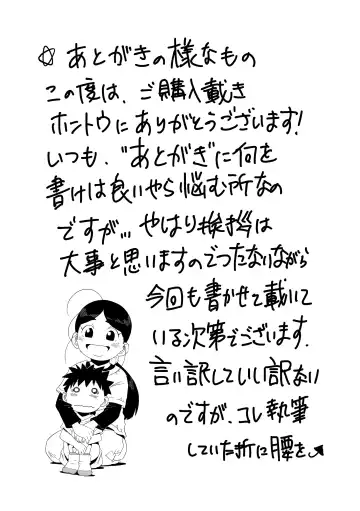 ☆あとがきの様なもの
この度は、ご購入戴き
ホントウにありがとうございます!
いつも、"あとがき"に何を
書けば良いやら悩む所なの
ですが,,, やはり挨拶は
大事と思いますのでつたないながら
今回も書かせて戴いて
いる次第でございます.
言い訳していい訳ない
のですが、コレ執筆
していた折に腰を